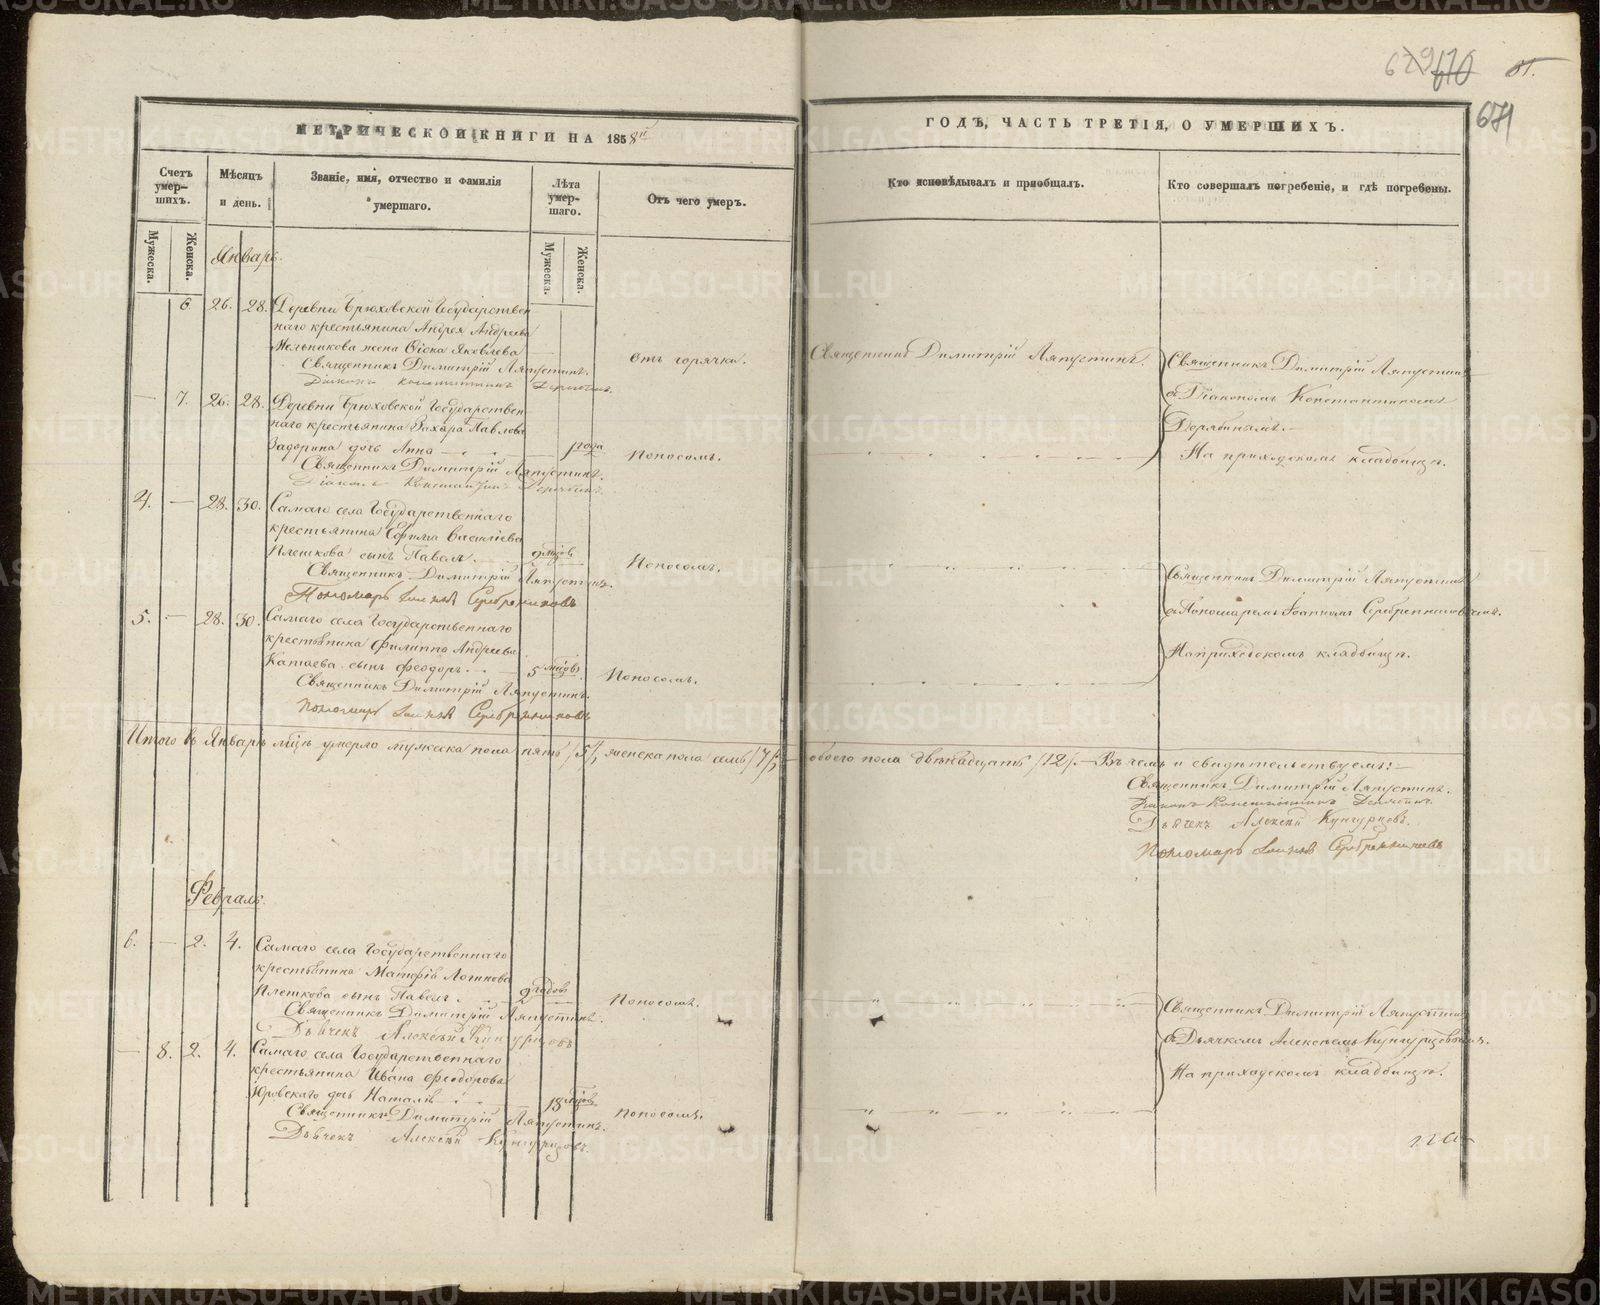 679 670 81.
671
МЕТРИЧЕСКОЙ КНИГИ НА 1858й
ГОДЪ, ЧАСТЬ ТРЕТІЯ, О УМЕРШИХЪ.
Счетъ умер-шихъ.
Мужеска.
Женска.
Мѣсяцъ и день.
Званіе, имя, отчество и фамилія умершаго.
Лѣта умер-шаго.
Мужеска.
Женска.
Отъ чего умеръ.
Кто исповѣдывалъ и пріобщалъ.
Кто совершалъ погребеніе, и гдѣ погребены.
Январь.
6 26. 28. Деревни Брюховской Государствен
наго крестьянина Андрея Андреева
Мельникова жена Фіока Яковлева
Отъ горячки.
Священникъ Димитрій Ляпустинъ.
Священникъ Димитрій Ляпустинъ.
Діаконъ Константинъ
Священникъ Димитрій Ляпустинъ
съ Діакономъ Константиномъ
На приходскомъ кладбищѣ.
— 7. 26. 28. Деревни Брюховской Государствен
наго крестьянина Захара Павлова
Задорина дочь Анна — 1 года
Поносомъ.
Священникъ Димитрій Ляпустинъ.
Діаконъ Константинъ
4. — 28. 30. Самаго села Государственнаго
крестьянина Ефима Васильева
Плешкова сынъ Павелъ 9 мѣсов
Поносомъ.
Священникъ Димитрій Ляпустинъ.
Пономарь Іоаннъ Серебренниковъ
Священникъ Димитрій Ляпустинъ
съ Пономаремъ Іоанномъ Серебренниковымъ.
На приходскомъ кладбищѣ.
5. — 28. 30. Самаго села Государственнаго
крестьянина Филиппа Андреева
сынъ Феодоръ. — 5 мѣсов
Поносомъ.
Священникъ Димитрій Ляпустинъ.
Пономарь Іоаннъ Серебренниковъ
Итого въ Январѣ мѣцѣ умерло мужеска пола пять /5/, женска пола семь /7/, — обоего пола двѣнадцать /12/. — Въ чемъ и свидѣтельствуемъ: —
Священникъ Димитрій Ляпустинъ.
Діаконъ Константинъ
Дьячекъ Алексѣй Кунгурцовъ.
Пономарь Іоаннъ Серебренниковъ
Февраль.
6. — 2. 4. Самаго села Государственнаго
крестьянина Матфія Логинова
Плешкова сынъ Павелъ. 2 годовъ
Поносомъ.
Священникъ Димитрій Ляпустинъ.
Дьячекъ Алексѣй Кунгурцовъ
Священникъ Димитрій Ляпустинъ
съ Дьячкомъ Алексѣемъ Кунгурцовымъ.
На приходскомъ кладбищѣ.
— 8. 2. 4. Самаго села Государственнаго
крестьянина Ивана Феодорова
Юровскаго дочь Наталія 18 мѣсов
Поносомъ.
Священникъ Димитрій Ляпустинъ.
Дьячекъ Алексѣй Кунгурцовъ.
METRIKI.GASO-URAL.RU